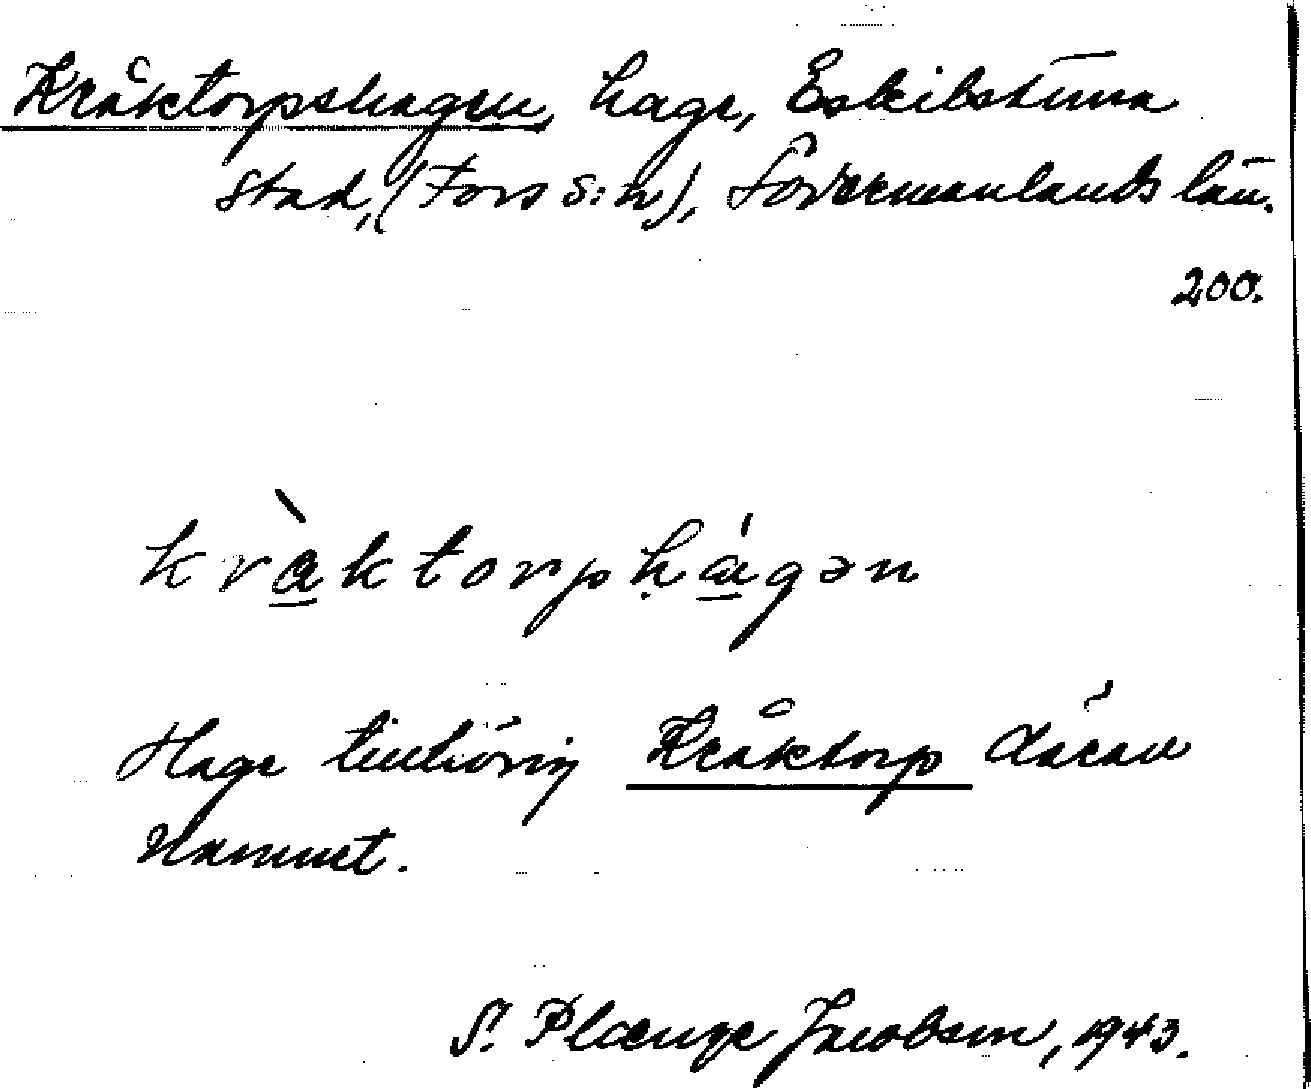 Kråktorpshagen, hage, Eskilstuna
stad, (Fors s:n), Södermanlands län.
200.
kràktorphágən
Hage tillhörig Kråktorp därav
namnet.
S. Plænge Jacobson, 1943.